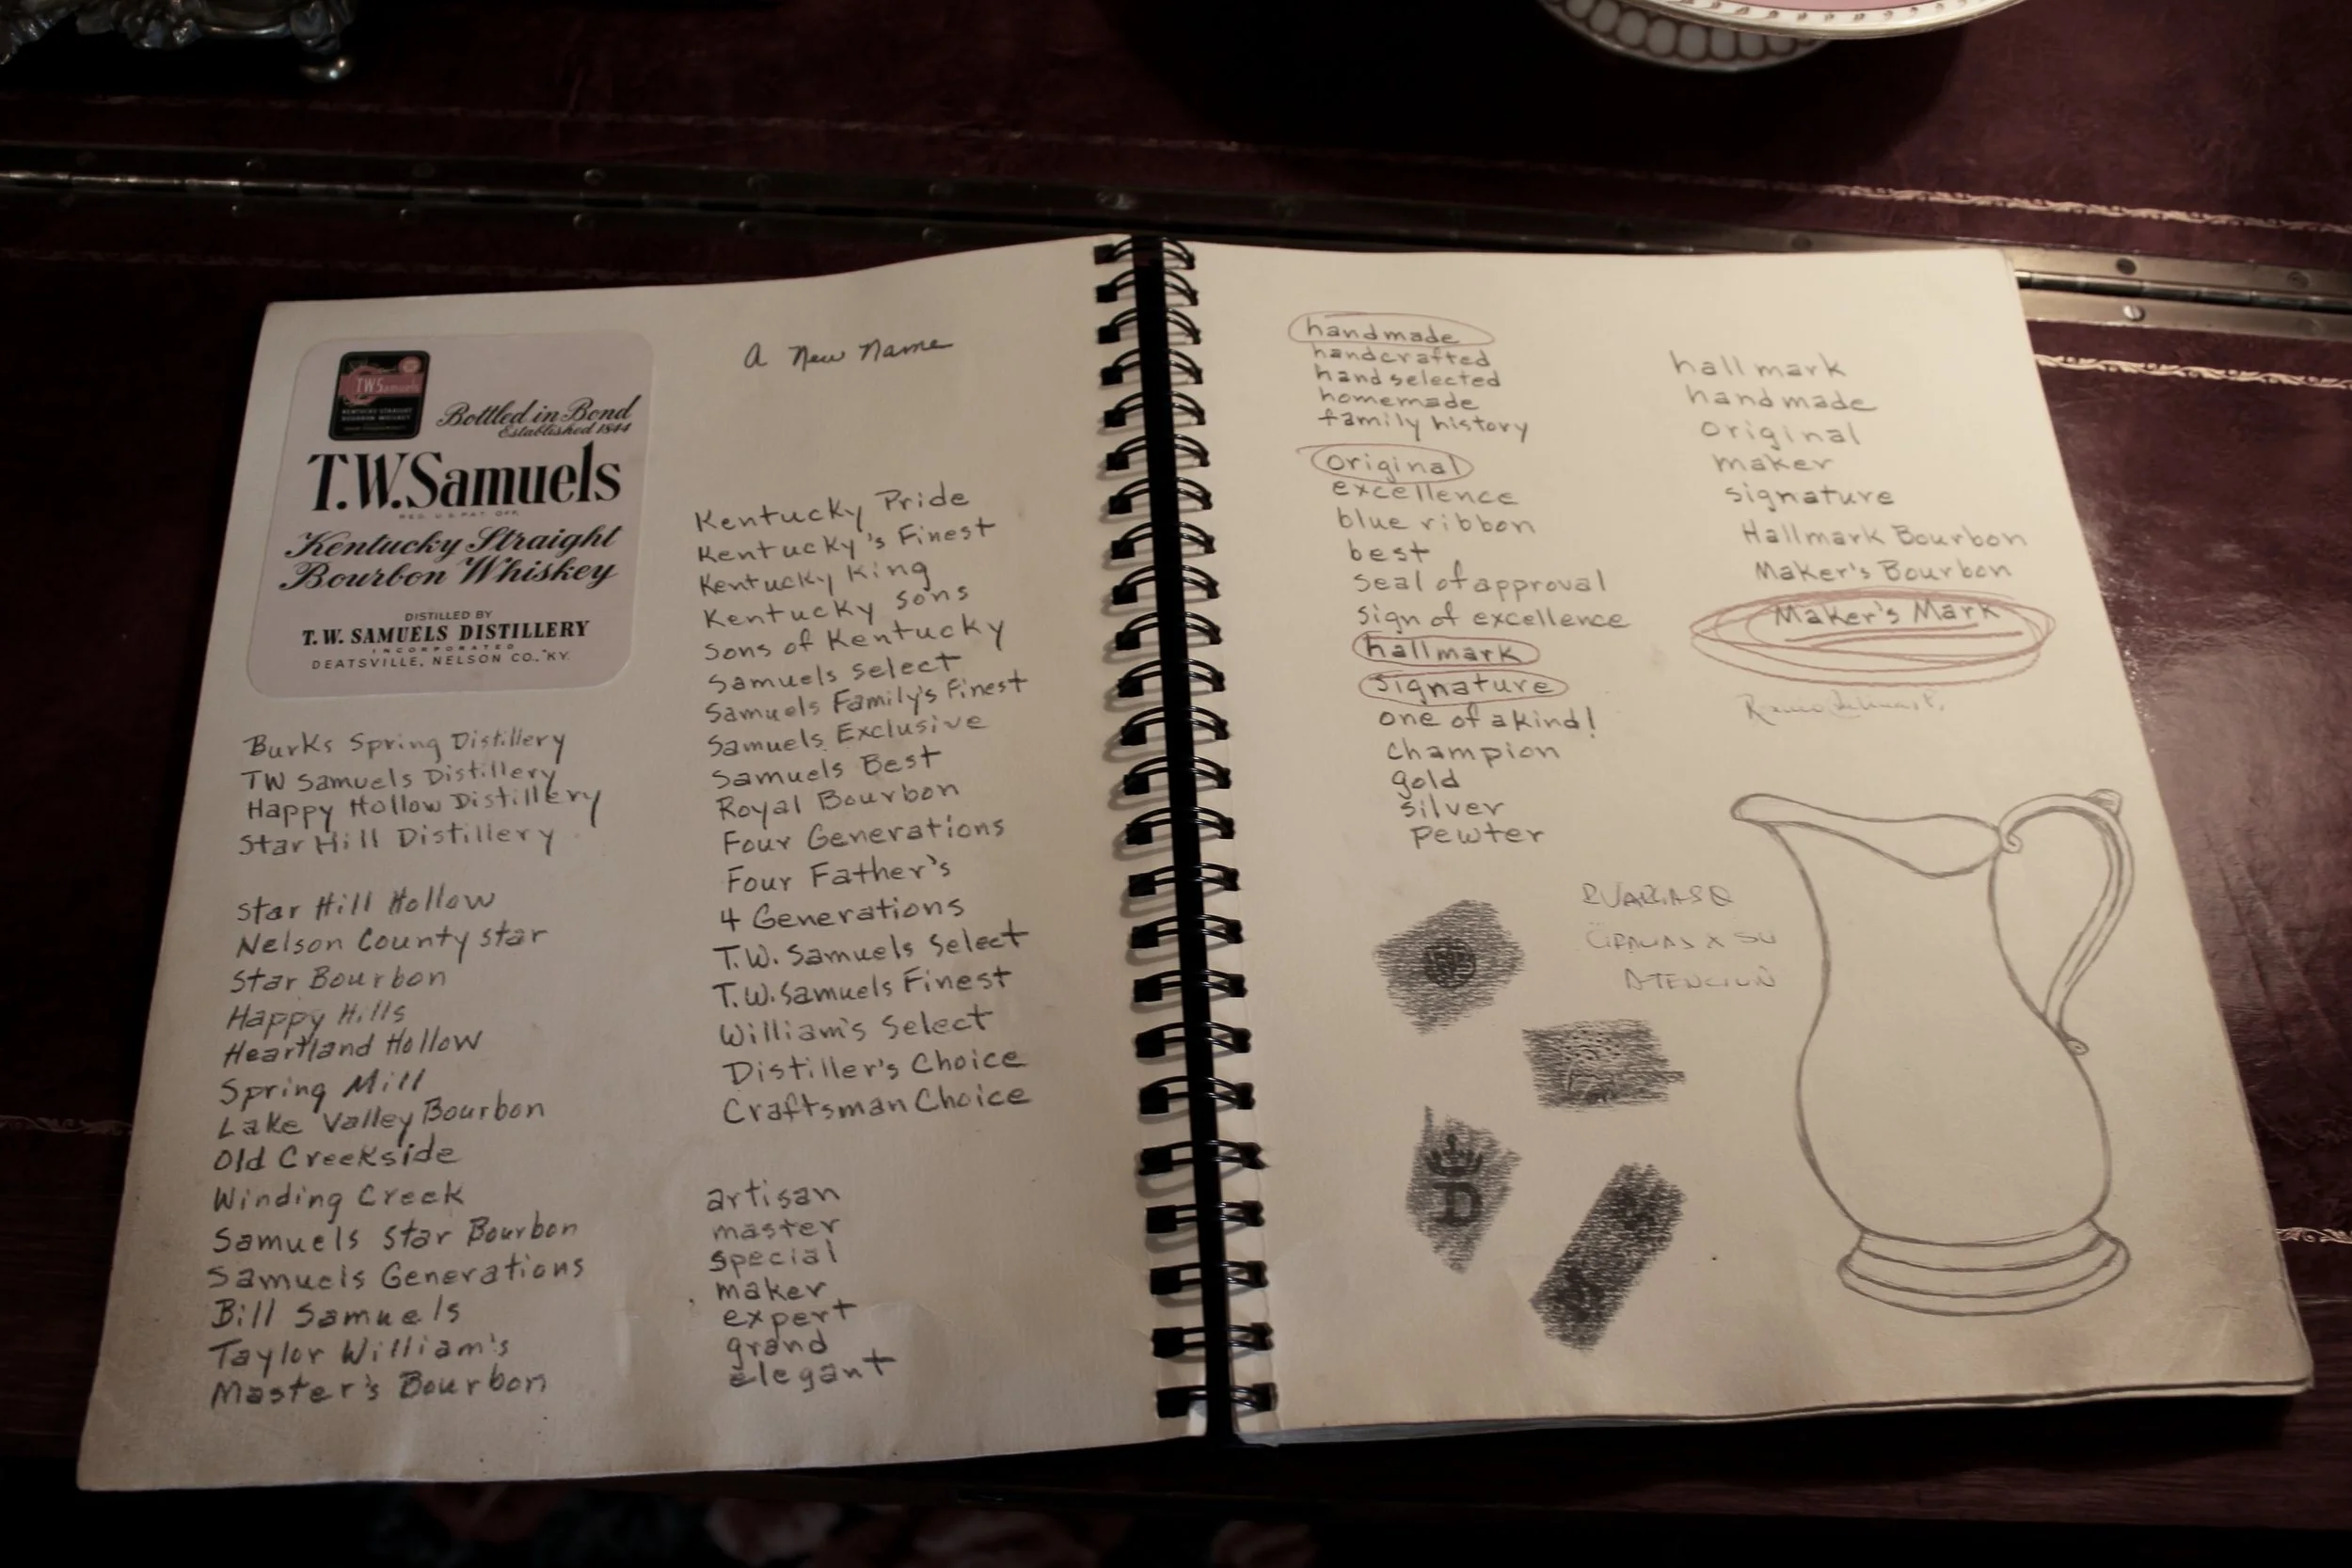 T.W.Samuels
KENTUCKY STRAIGHT
BOURBON WHISKEY
Bottled in Bond
Established 1844
T.W.Samuels
REG. U.S. PAT. OFF.
Kentucky Straight
Bourbon Whiskey
DISTILLED BY
T. W. SAMUELS DISTILLERY
INCORPORATED
DEATSVILLE, NELSON CO., KY.
Burks Spring Distillery
TW Samuels Distillery
Happy Hollow Distillery
Star Hill Distillery
Star Hill Hollow
Nelson County Star
Star Bourbon
Happy Hills
Heartland Hollow
Spring Mill
Lake Valley Bourbon
Old Creekside
Winding Creek
Samuels Star Bourbon
Samuels Generations
Bill Samuels
Taylor William's
Master's Bourbon
A New Name
Kentucky Pride
Kentucky's Finest
Kentucky King
Kentucky Sons
Sons of Kentucky
Samuels Select
Samuels Family's Finest
Samuels Exclusive
Samuels Best
Royal Bourbon
Four Generations
Four Father's
4 Generations
T.W. Samuels Select
T.W. Samuels Finest
William's Select
Distiller's Choice
Craftsman Choice
artisan
master
special
maker
expert
grand
elegant
handmade
handcrafted
hand selected
homemade
family history
original
excellence
blue ribbon
best
seal of approval
sign of excellence
hallmark
signature
one of a kind!
champion
gold
silver
pewter
hallmark
handmade
original
maker
signature
Hallmark Bourbon
Maker's Bourbon
Maker's Mark
X SU
ATENCION
D